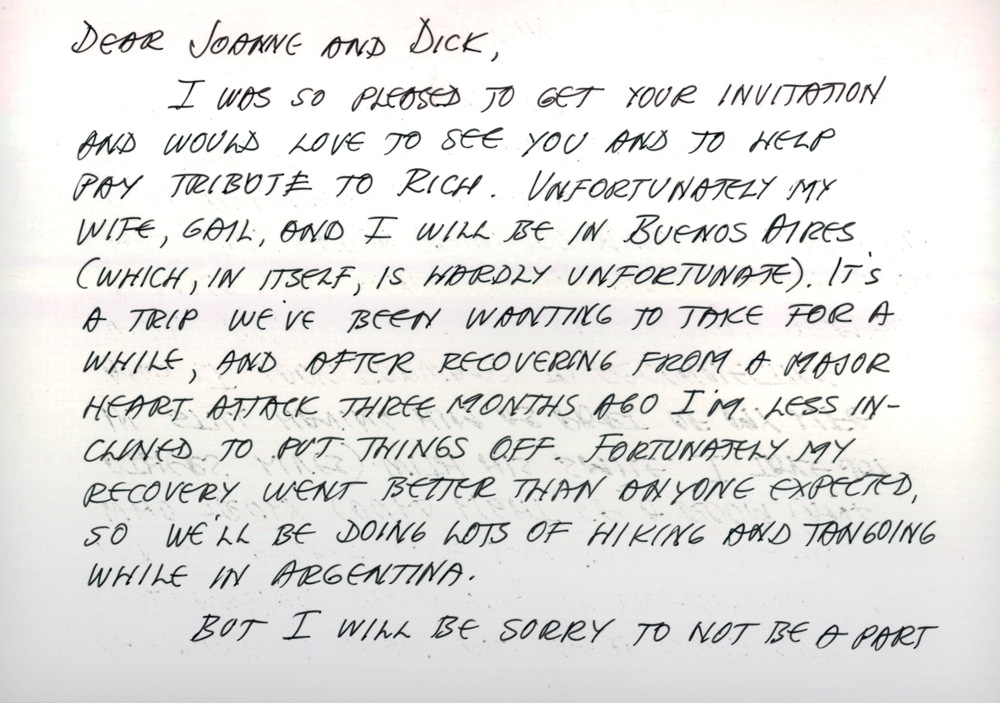 DEAR JOANNE AND DICK,
I WAS SO PLEASED TO GET YOUR INVITATION
AND WOULD LOVE TO SEE YOU AND TO HELP
PAY TRIBUTE TO RICH. UNFORTUNATELY MY
WIFE, GAIL, AND I WILL BE IN BUENOS AIRES
(WHICH, IN ITSELF, IS HARDLY UNFORTUNATE). IT'S
A TRIP WE'VE BEEN WANTING TO TAKE FOR A
WHILE, AND AFTER RECOVERING FROM A MAJOR
HEART ATTACK THREE MONTHS AGO I'M LESS IN-
CLINED TO PUT THINGS OFF. FORTUNATELY MY
RECOVERY WENT BETTER THAN ANYONE EXPECTED,
SO WE'LL BE DOING LOTS OF HIKING AND TANGOING
WHILE IN ARGENTINA.
BUT I WILL BE SORRY TO NOT BE A PART